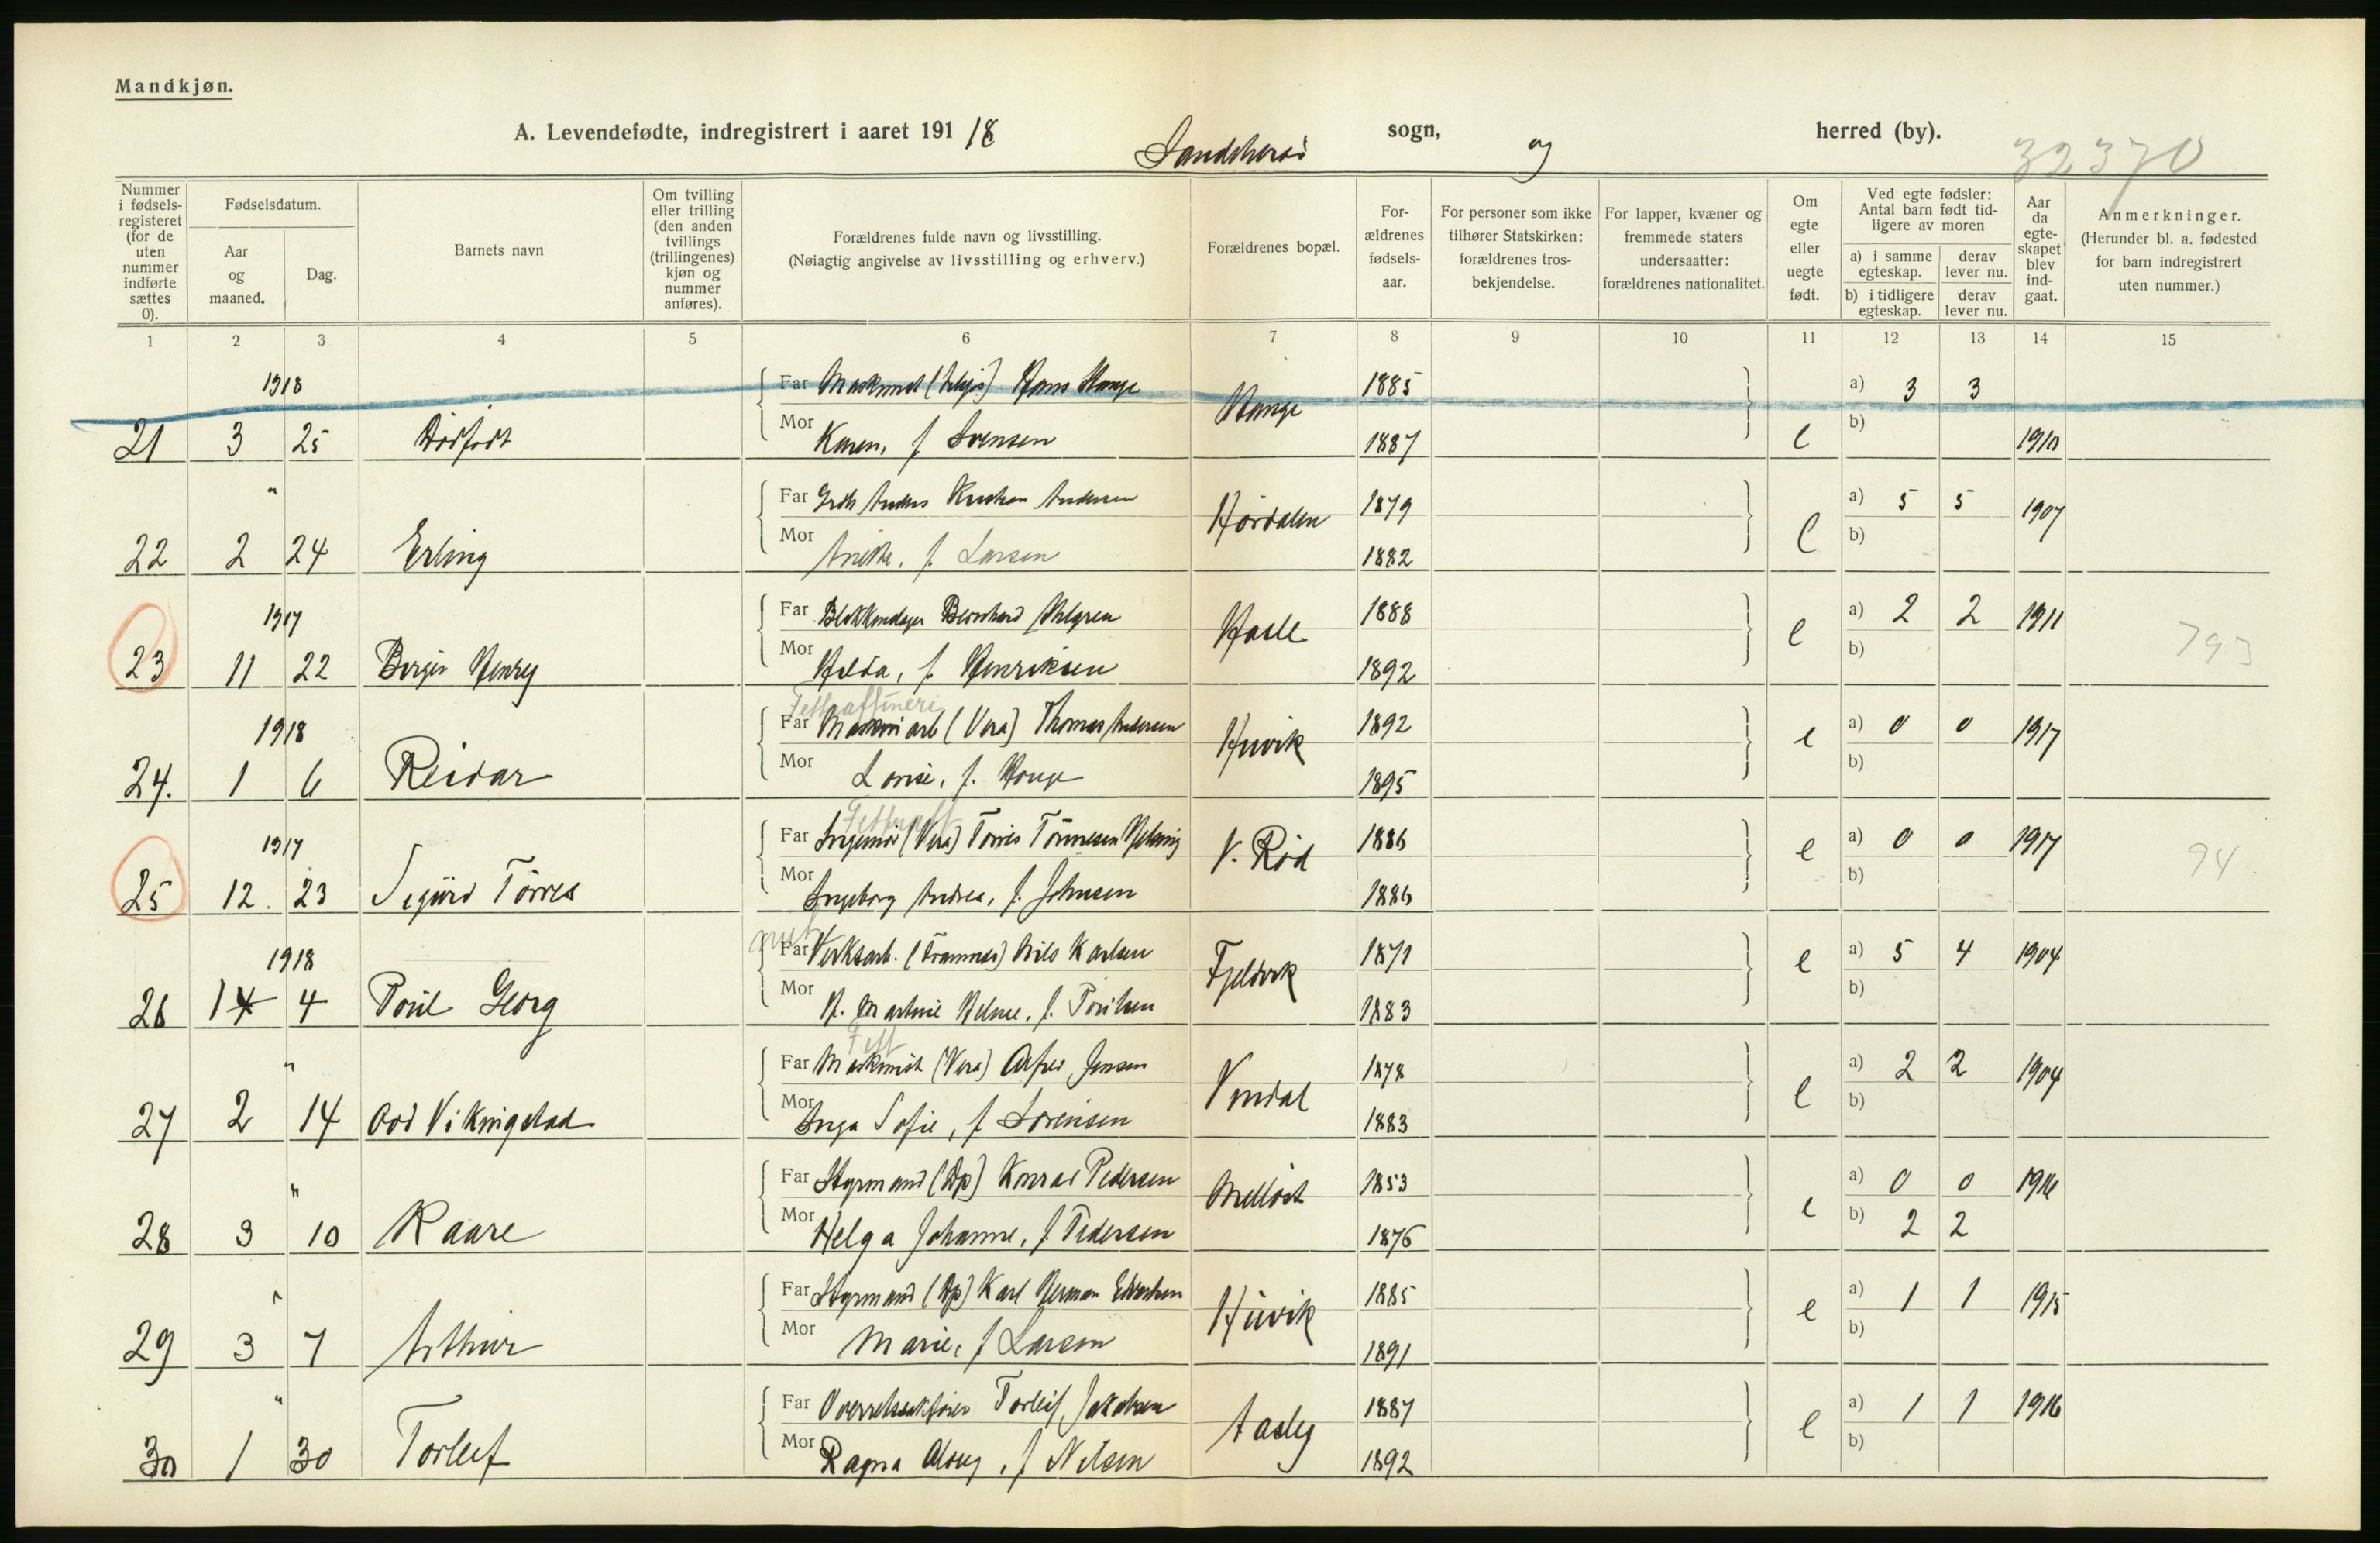 Mandkjøn.
A. Levendefødte, indregistrert i aaret 191 18 Sandeherad sogn, og herred (by). 32370
Nummer i fødselsregisteret (for de uten nummer indførte sættes 0).
Fødselsdatum.
Aar og maaned.
Dag.
Barnets navn
Om tvilling eller trilling (den anden tvillings (trillingenes) kjøn og nummer anføres).
Forældrenes fulde navn og livsstilling.
(Nøiagtig angivelse av livsstilling og erhverv.)
Forældrenes bopæl.
Forældrenes fødselsaar.
For personer som ikke tilhører Statskirken: forældrenes trosbekjendelse.
For lapper, kvæner og fremmede staters undersaatter: forældrenes nationalitet.
Om egte eller uegte født.
Ved egte fødsler: Antal barn født tidligere av moren
a) i samme egteskap.
derav lever nu.
b) i tidligere egteskap.
derav lever nu.
Aar da egteskapet blev indgaat.
Anmerkninger.
(Herunder bl. a. fødested for barn indregistrert uten nummer.)
1 2 3 4 5 6 7 8 9 10 11 12 13 14 15
1918 Far Maskinist Hans Hauge Hauge 1885 a) 3 3
21 3 25 Dødfødt Mor Karen, f Svensen 1887 e b) 1910
" Far Anders Kristian Andersen Hørdalen 1879 a) 5 5 1907
22 2 24 Erling Mor f. Larsen 1882 e b)
1917 Far Bernhard Ahlgren Hasle 1888 a) 2 2 1911
23 11 22 Birger Henry Mor Hilda, f. Henriksen 1892 e b) 793
Fettraffineri
1918 Far Maskinarb (Vera) Thomas Andersen Huvik 1892 a) 0 0 1917
24. 1 6 Reidar Mor Lovise, f. Hauge 1895 e b)
1917 Far Ingeniør (Vera) Torres Tønnesen V. Rød 1886 a) 0 0 1917
25 12. 23 Sigurd Torres Mor Ingeborg Andrea, f. Johnsen 1886 e b) 94
1918 Far Verksarb. (Framnæs) Nils Karlsen Fjeldvik 1871 a) 5 4 1904
26 1 4 4 Poul Georg Mor H. Martine Helene, f. Poulsen 1883 e b)
Fett
" Far Maskinist (Vera) Alfred Jensen Vindal 1878 a) 2 2 1904
27 2 14 Odd Vikingstad Mor Inga Sofie, f Sørensen 1883 e b)
" Far Styrmand (Dp) Konrad Pedersen Melløst 1853 a) 0 0 1916
28 3 10 Kaare Mor Helga Johanne, f. Pedersen 1876 e b) 2 2
" Far Styrmand (Dp) Karl Herman Huvik 1885 a) 1 1 1915
29 3 7 Arthur Mor Marie, f Larsen 1891 e b)
" Far Overretssakfører Torleif Jakobsen Aasly 1887 a) 1 1 1916
30 1 30 Torleif Mor Ragna f Nilsen 1892 e b)